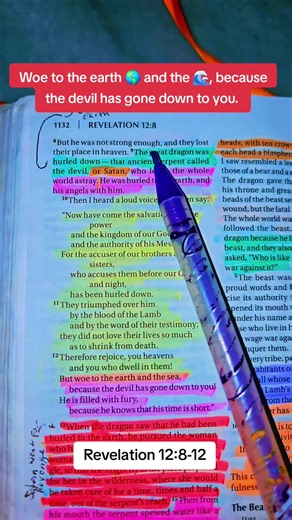 Woe to the earth 🌎 and the 🌊, because
the devil has gone down to you.
1132 | REVELATION 12:8
8But he was not strong enough, and they lost
their place in heaven. 9The great dragon was
hurled down—that ancient serpent called
the devil, or Satan, who leads the whole
world astray. He was hurled to the earth, and
his angels with him.
10Then I heard a loud voice in heaven say:
"Now have come the salvation and the
power
and the kingdom of our God,
and the authority of his Messiah.
For the accuser of our brothers and
sisters,
who accuses them before our God day
and night,
has been hurled down.
11They triumphed over him
by the blood of the Lamb
and by the word of their testimony;
they did not love their lives so much
as to shrink from death.
12Therefore rejoice, you heavens
and you who dwell in them!
But woe to the earth and the sea,
because the devil has gone down to you!
He is filled with fury,
because he knows that his time is short."
13When the dragon saw that he had been
hurled to the earth, he pursued the woman
who
for her in the wilderness, where she would
be taken care of for a time, times and half a
time, out of the serpent's reach. 15Then from
his mouth the serpent spewed water like
heads, with ten crow
each head a blasphem
I saw resembled a leo
those of a bear and a
The dragon gave th
his throne and grea
heads of the beast see
wound, but the fatal
The whole world wa
followed the beast.
dragon because he
beast, and they also
asked, "Who is like
war against it?"
5The beast was
proud words and
cise its authority
opened its mouth
Revelation 12:8-12
The Bea